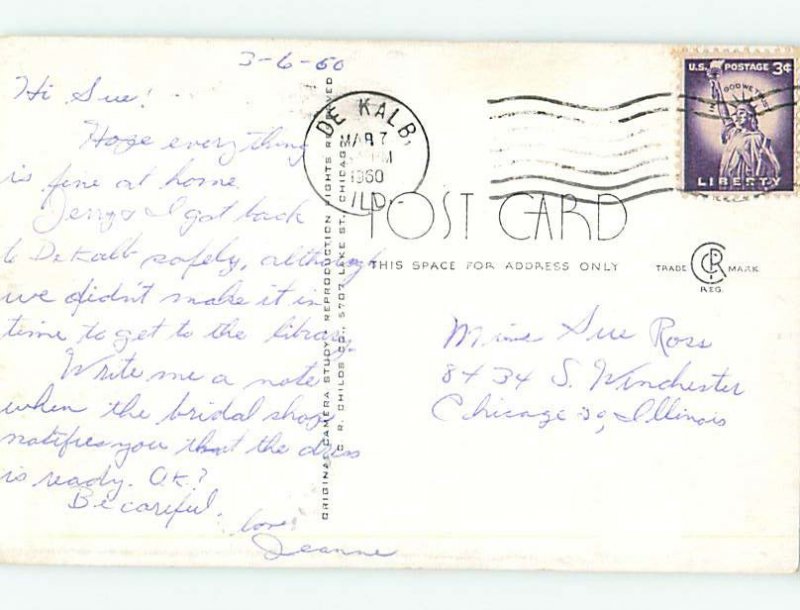 3-6-60
Hi Sue!
Hope everything
is fine at home.
Jerry & I got back
to DeKalb safely, although
we didn't make it in
time to get to the library.
Write me a note
when the bridal shop
notifies you that the dress
is ready. OK?
Be careful.
Love
Jeanne
ORIGINAL CAMERA STUDY - REPRODUCTION RIGHTS RESERVED
C. R. CHILDS CO., 5707 LAKE ST., CHICAGO
DE KALB,
MAR 7
PM
1960
ILL.
U.S. POSTAGE 3¢
IN GOD WE TRUST
LIBERTY
POST CARD
THIS SPACE FOR ADDRESS ONLY
TRADE CR MARK
REG.
Miss Sue Ross
8434 S. Winchester
Chicago 20, Illinois